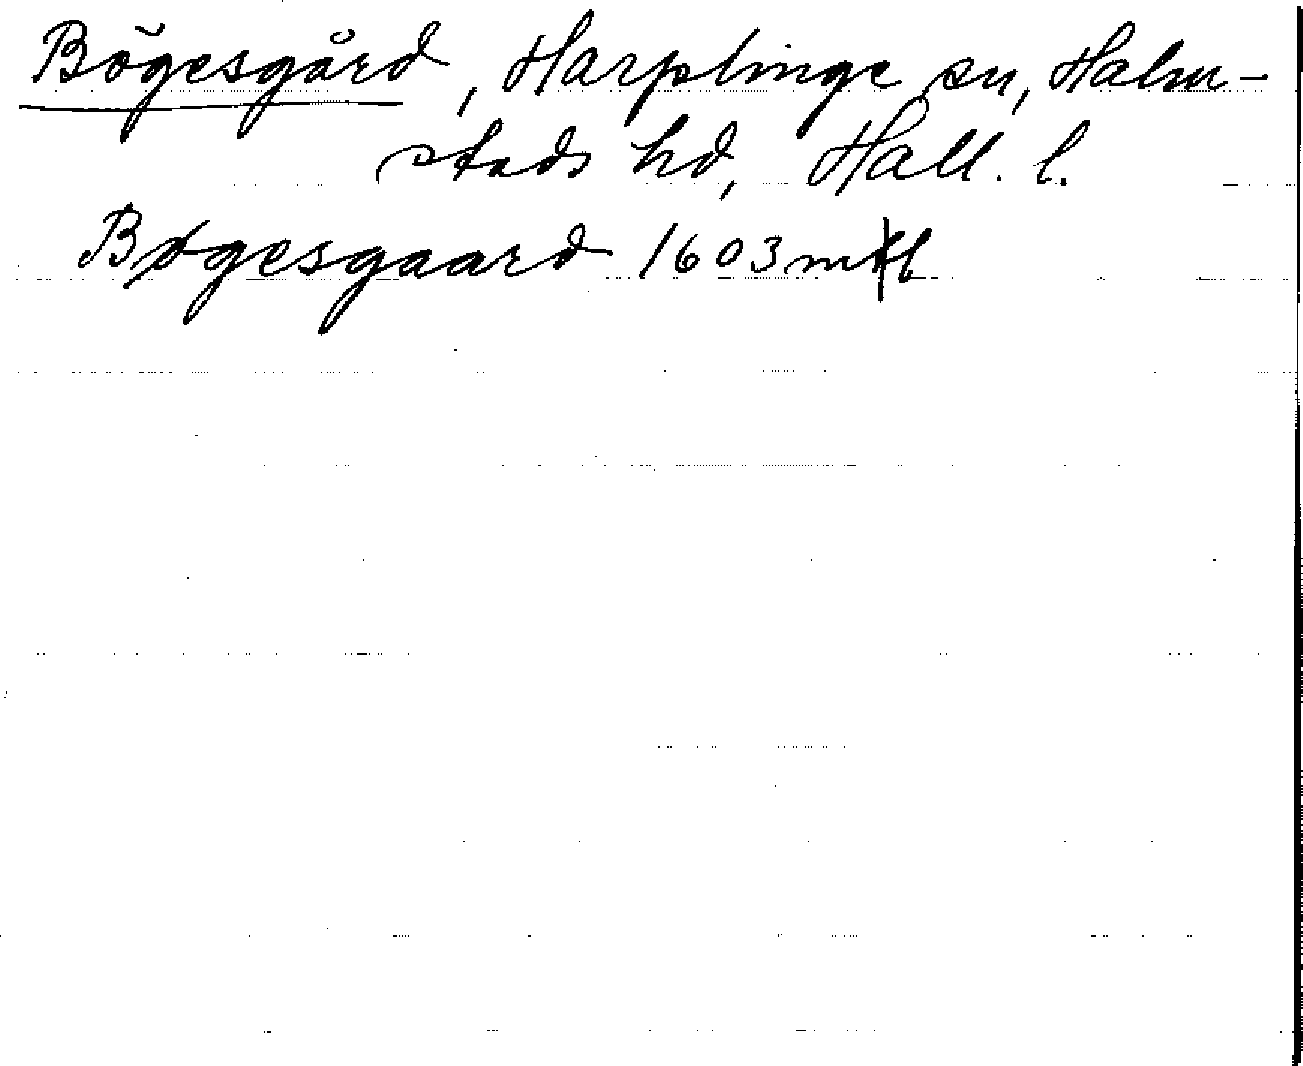 Bögesgård, Harplinge sn, Halm-
stads hd, Hall. l.
Bøgesgaard 1603